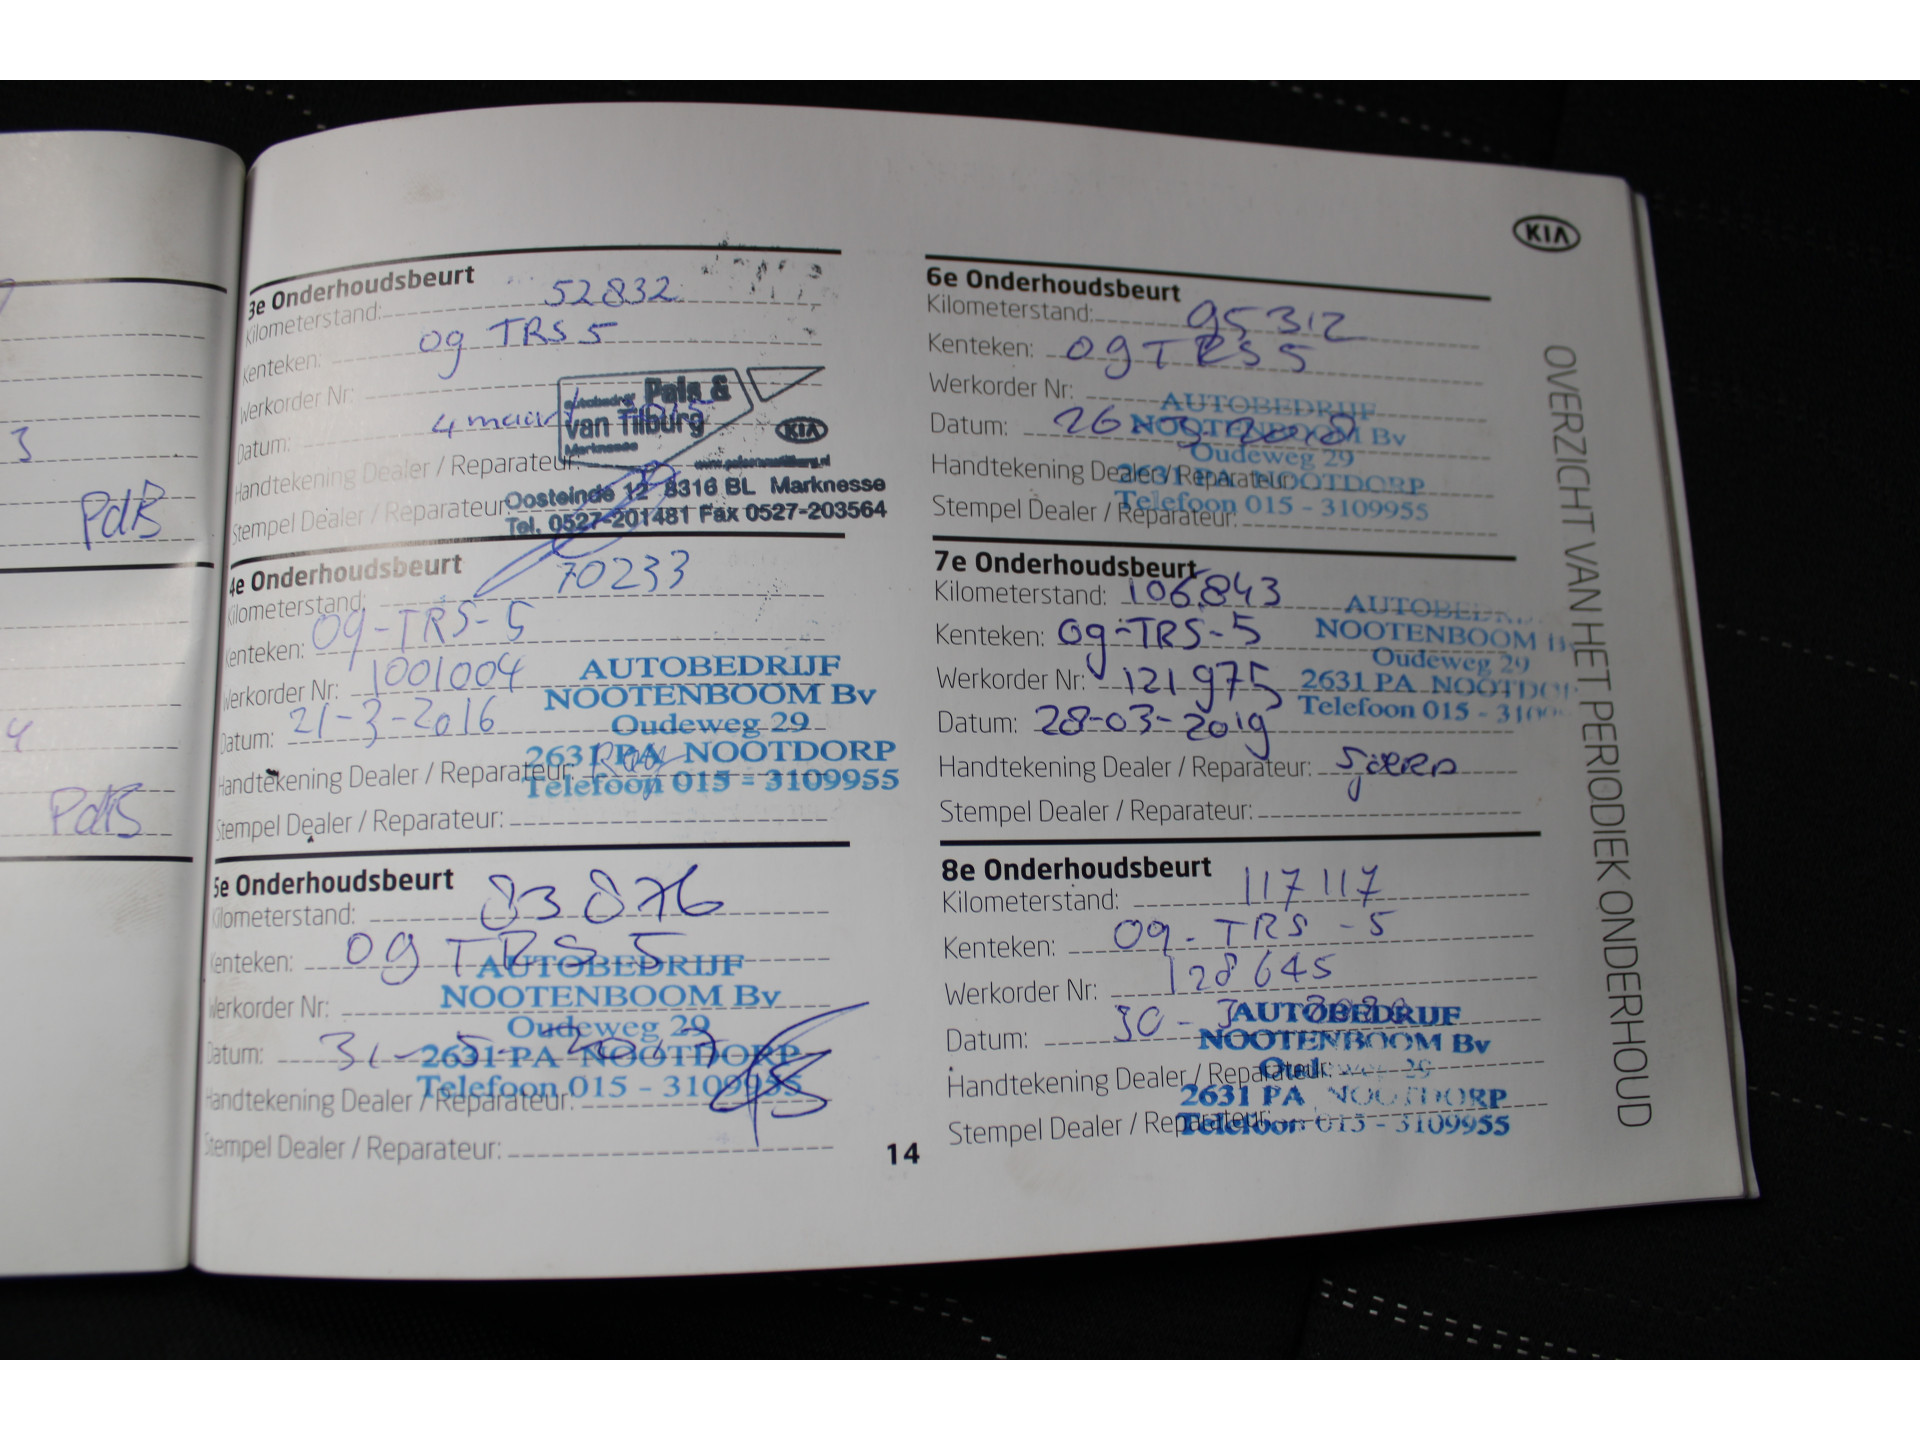 3
PdB
4
PdB
3e Onderhoudsbeurt
Kilometerstand: 52832
Kenteken: 09 TRS 5
Werkorder Nr:
Datum: 4 maart
Handtekening Dealer / Reparateur:
Stempel Dealer / Reparateur:
autobedrijf Pals &
van Tilburg
Marknesse
KIA
Oosteinde 12 8316 BL Marknesse
Tel. 0527-201481 Fax 0527-203564
4e Onderhoudsbeurt
Kilometerstand: 70233
Kenteken: 09-TRS-5
Werkorder Nr: 1001004
Datum: 21-3-2016
Handtekening Dealer / Reparateur:
Stempel Dealer / Reparateur:
AUTOBEDRIJF
NOOTENBOOM Bv
Oudeweg 29
2631 PA NOOTDORP
Telefoon 015 - 3109955
5e Onderhoudsbeurt
Kilometerstand: 83876
Kenteken: 09 TRS 5
Werkorder Nr:
Datum: 31-5-2017
Handtekening Dealer / Reparateur:
Stempel Dealer / Reparateur:
AUTOBEDRIJF
NOOTENBOOM Bv
Oudeweg 29
2631 PA NOOTDORP
Telefoon 015 - 3109955
14
KIA
6e Onderhoudsbeurt
Kilometerstand: 95312
Kenteken: 09 TRS 5
Werkorder Nr:
Datum: 26 3 2018
Handtekening Dealer / Reparateur:
Stempel Dealer / Reparateur:
AUTOBEDRIJF
NOOTENBOOM Bv
Oudeweg 29
2631 PA NOOTDORP
Telefoon 015 - 3109955
7e Onderhoudsbeurt
Kilometerstand: 106.843
Kenteken: 09-TRS-5
Werkorder Nr: 121975
Datum: 28-03-2019
Handtekening Dealer / Reparateur:
Stempel Dealer / Reparateur:
AUTOBEDRIJF
NOOTENBOOM Bv
Oudeweg 29
2631 PA NOOTDORP
Telefoon 015 - 3109
8e Onderhoudsbeurt
Kilometerstand: 117117
Kenteken: 09-TRS-5
Werkorder Nr: 128645
Datum: 30-3-2020
Handtekening Dealer / Reparateur:
Stempel Dealer / Reparateur:
AUTOBEDRIJF
NOOTENBOOM Bv
Oudeweg 29
2631 PA NOOTDORP
Telefoon 015 - 3109955
OVERZICHT VAN HET PERIODIEK ONDERHOUD